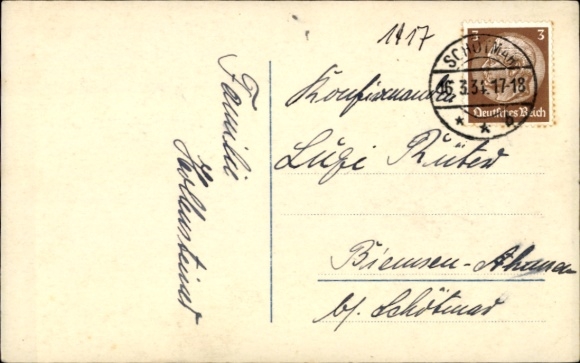 1417
3 3
SCHÖTMAR
16.3.34.17-18
Deutsches Reich
Konfirmandin
Luzi Rüter
Biemsen-Ahmsen
b/ Schötmar
Familie